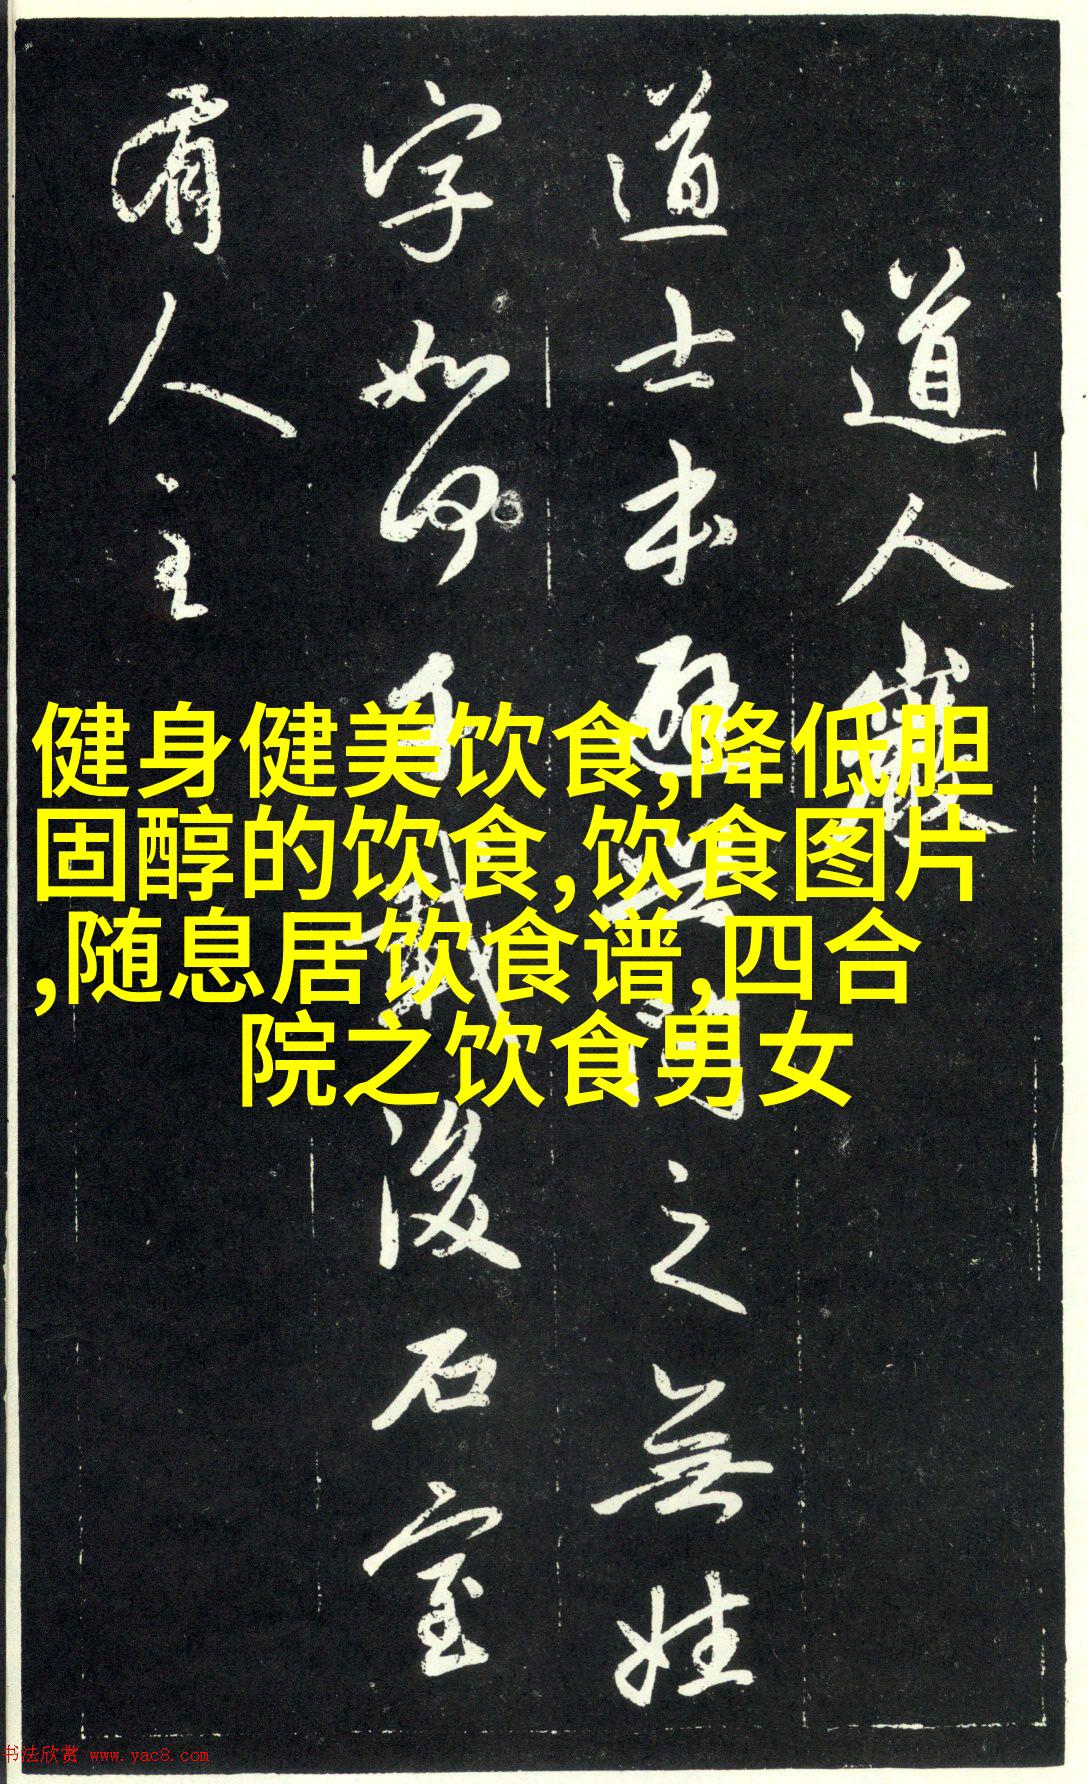 道人巖
道士本避
之無姓
字如何
後石室
有人主
健身健美饮食,降低胆
固醇的饮食,饮食图片
,随息居饮食谱,四合
院之饮食男女
书法欣赏 www.yac8.com